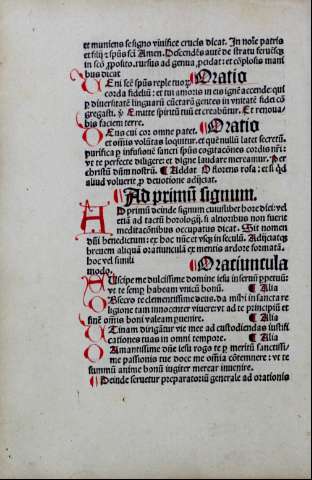 et muniens se signo vivifice crucis dicat. In noīe patris
et filij ⁊ spūs scī Amen. Descendēs autē de stratu
in scō ꝓposito. rursus ad genua ꝓcidat: et cōplosis mani
bus dicat
Oratio
Eni scē spūs reple tuoꝝ
corda fidelíū: et tui amoris in eis ignē accende: qui
ꝑ diuersitatē linguarū cūctarū gentes in vnitatē fidei cō
gregasti. ℣ Emitte spūritū tuū et creabūtur. Et renoua-
bis faciem terre.
Oratio
Eus cui cor omne patet.
et omīs volūtas loquitur. et quē nullū latet secretū.
purifica ꝑ infusionē sancti spūs cogitatōnes cordis nr̄i:
vt te perfecte diligere: et digne laudare mereamur. Per
christū dūm nostrū. ¶ Addat O florens rosa: et si qđ
aliud voluerit ꝑ deuotione adijciat.
¶ Ad primū signum.
AD primū deinde signum cuiuslibet hore diei: vel
etiā ad tactū horologij. si altioribus non fuerit
meditacōnibus occupatus dicat. Sit nomen
dn̄i benedictum: ex hoc nūc et vsqꝫ in seculū. Adijciatqꝫ
breuem aliquā oratiunculā ex mentis ardore formatā.
hoc vel simili
modo.
¶ Oratiuncula
Uscipe me dulcissime domine iesu in seruū ꝑpetuū:
vt te semp habeam vnicū bonū. ¶ Alia
Bsecro te clementissime deus. da mihi in sancta re
ligione tam innocenter viuere: vt ad te principiū et
finē omīs boni valeam ꝑuenire. ¶ Alia
Tinam dirigātur vie mee ad custodiendas iustifi
cationes tuas in omni tempore. ¶ Alia
Amantissime dn̄e iesu rogo te ꝑ meritū sanctissi-
me passionis tue doce me omīa cōtemnere: vt te
summū anime bonū iugiter merear inuenire.
¶ Deinde seruetur preparatoriū generale ad orationis